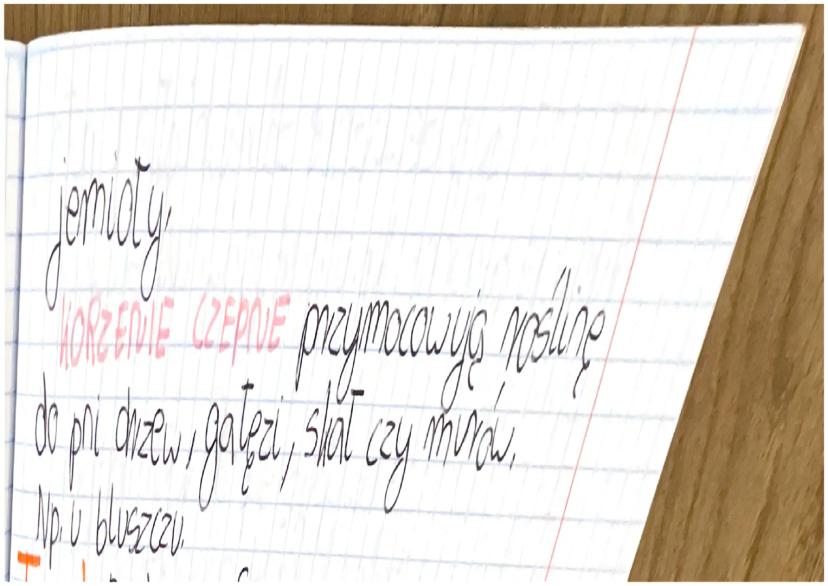 jemioły.
KORZENIE CZEPNE przymocowują roślinę
do pni drzew, gałęzi, skał czy murów.
Np. u bluszczu.